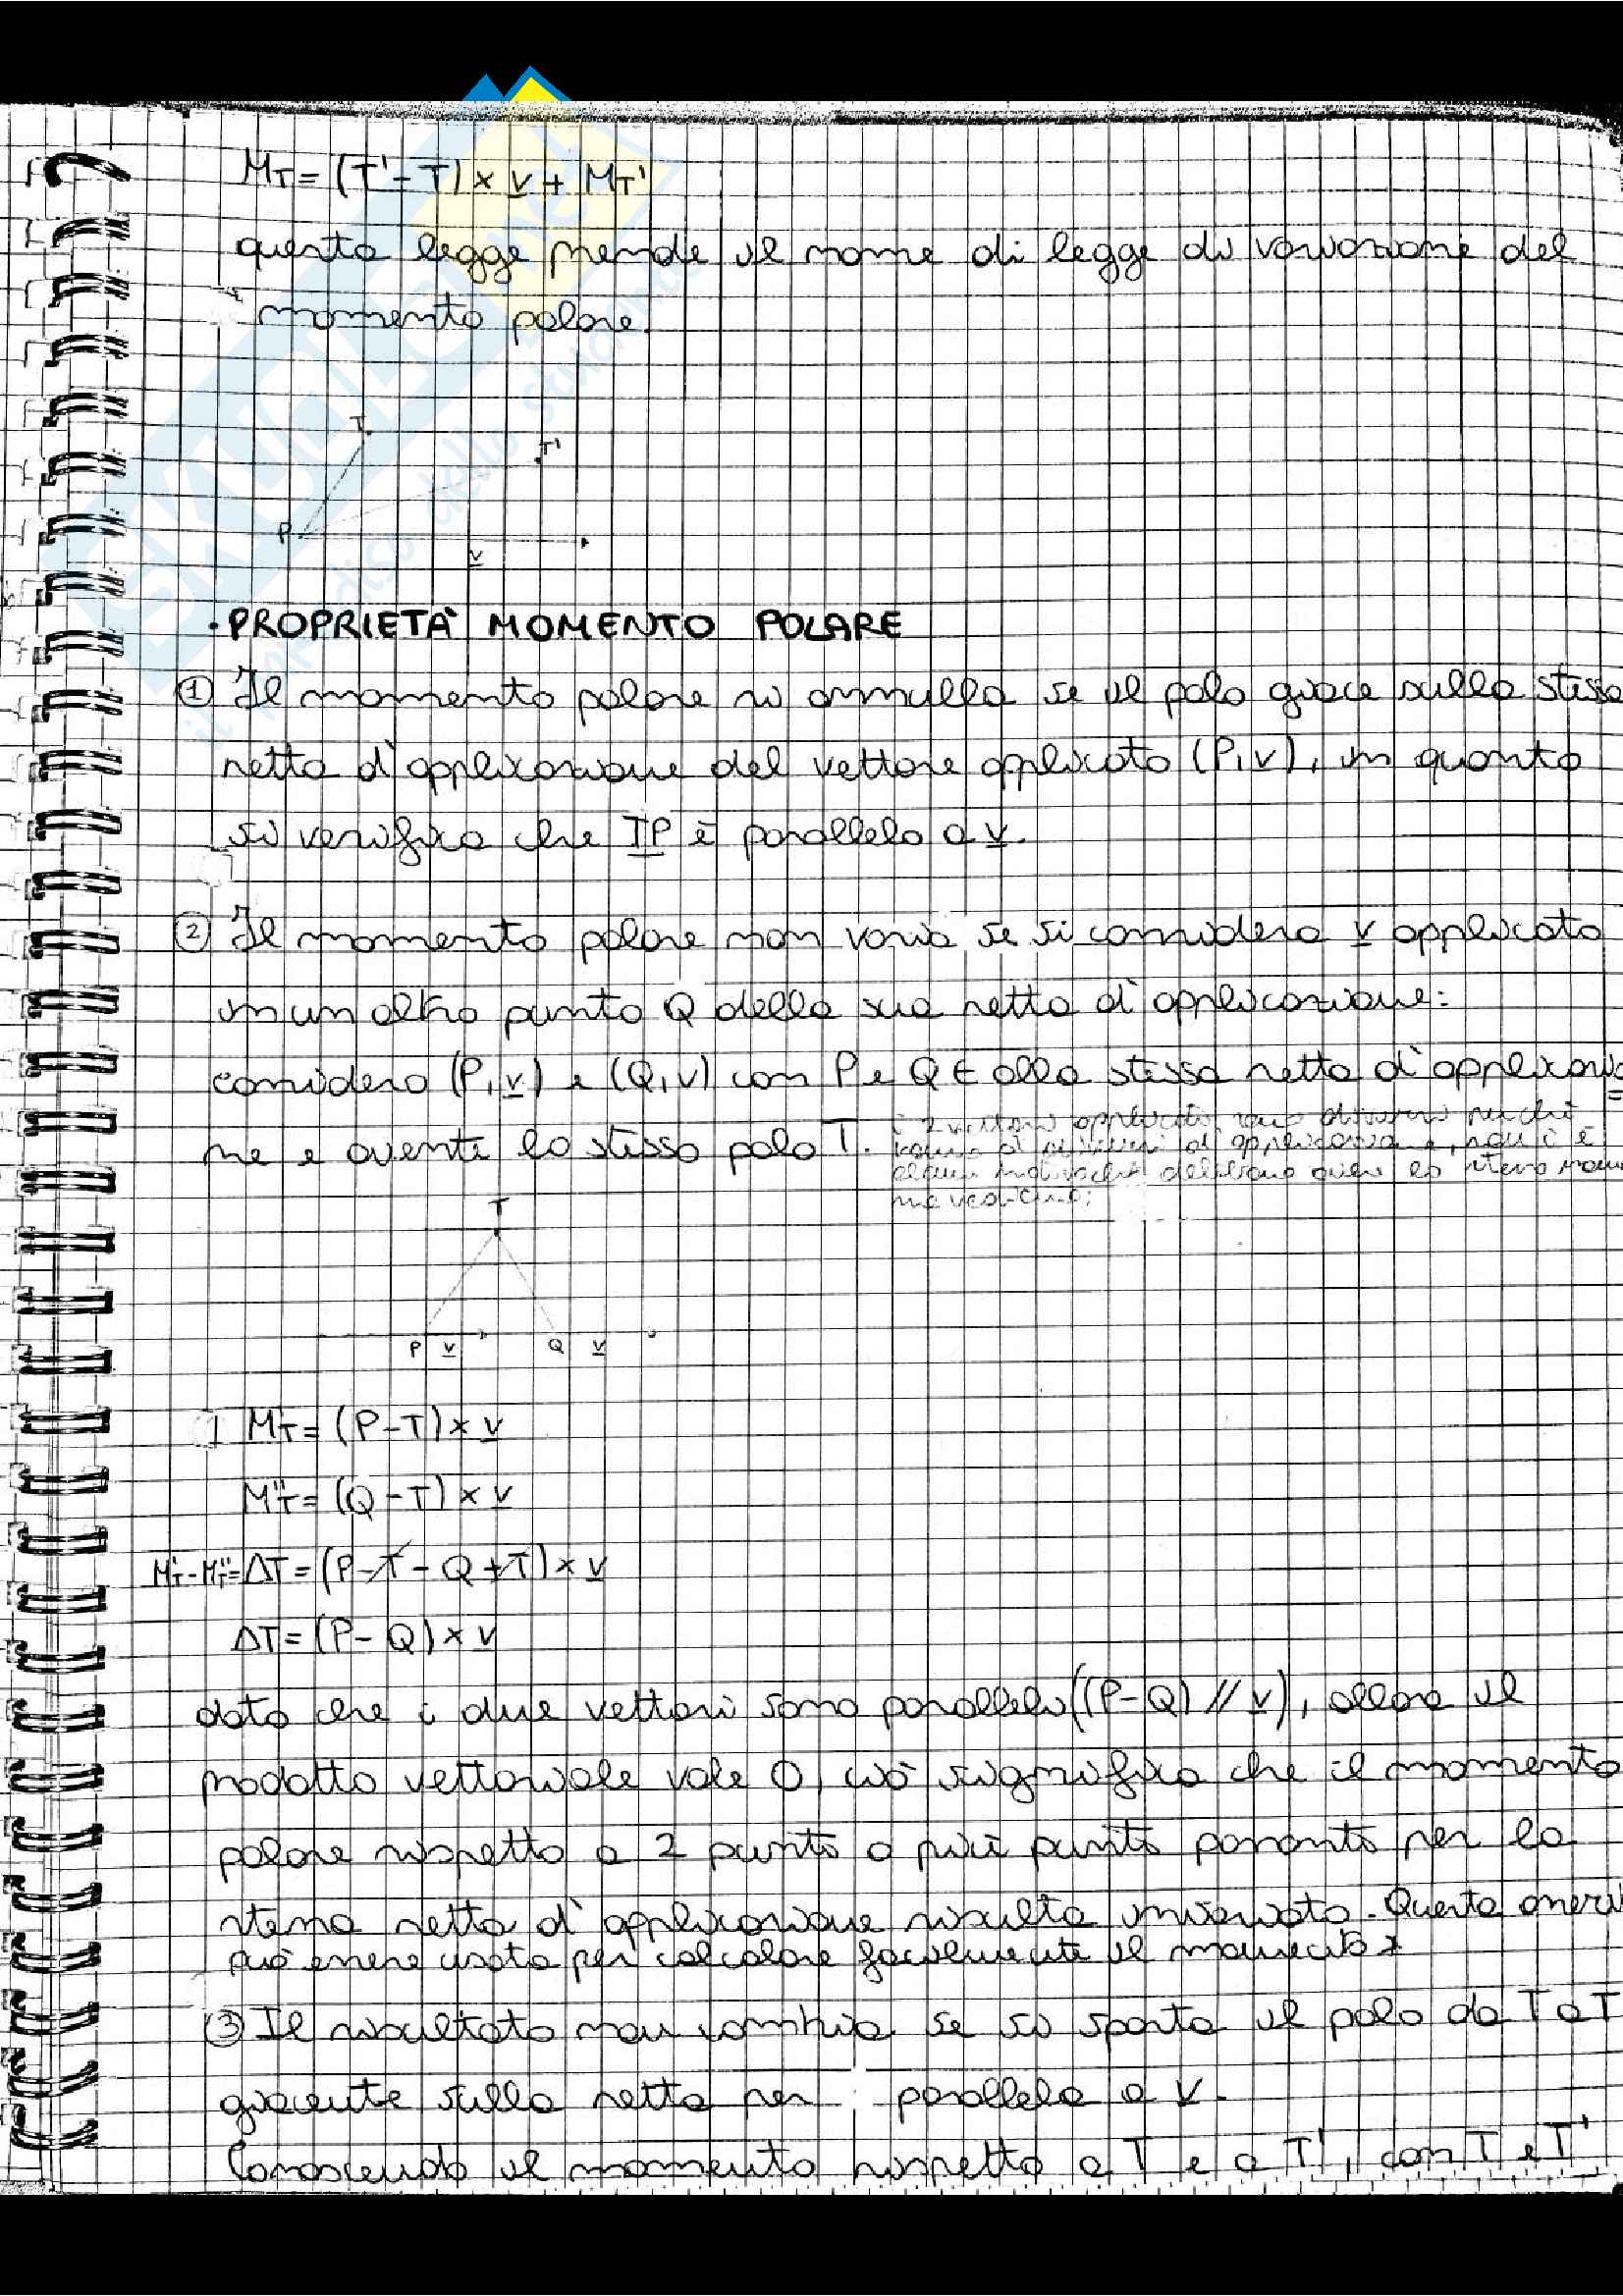 M_T = (T' - T) × v + M_T'
questa legge prende il nome di legge di variazione del
momento polare.
T
T'
P
v
· PROPRIETÀ MOMENTO POLARE
① Il momento polare si annulla se il polo giace sulla stessa
retta d'applicazione del vettore applicato (P, v), in quanto
si verifica che TP è parallelo a v.
② Il momento polare non varia se si considera v applicato
in un altro punto Q della sua retta d'applicazione:
considero (P, v) e (Q, v) con P e Q ∈ alla stessa retta d'applicazio
ne e aventi lo stesso polo T.
i 2 vettori applicati sono diversi perché
di applicazione, non c'è
T
P v Q v
M'_T = (P - T) × v
M''_T = (Q - T) × v
M'_T - M''_T = ΔT = (P - T - Q + T) × v
ΔT = (P - Q) × v
dato che i due vettori sono paralleli ((P - Q) // v), allora il
prodotto vettoriale vale 0, ciò significa che il momento
polare rispetto a 2 punti o più punti passanti per la
stessa retta d'applicazione risulta invariato. Questa
può essere usata per calcolare facilmente il momento *
③ Il risultato non cambia se si sposta il polo da T a T
giacente sulla retta per parallela a v.
Conoscendo il momento rispetto a T e a T', con T e T'
SKUOLA
il paradiso dello studente